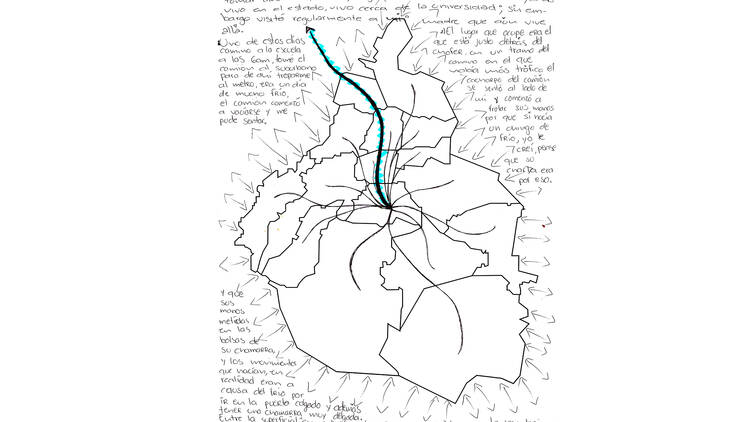 vivo en el estado, vivo cerca de la universidad; sin em-
bargo visito regularmente a mi madre que aún vive
allá.
Uno de estos días
camino a la escuela
a las 6am, tomé el
camión el suburbano
para de ahí treparme
al metro, era un día
de mucho frío,
el camión comenzó
a vaciarse y me
pude sentar.
El lugar que ocupé era el
que está justo detrás del
chofer, en un tramo del
camino en el que
había más tráfico el
cacharpo del camión
se sentó al lado de
mí y comenzó a
frotar sus manos
por que si hacía
un chingo de
frío, yo le
creí, pensé
que su
chamarra era
por eso.
y que
sus
manos
metidas
en las
bolsas de
su chamarra,
y los movimientos
que hacían, en
realidad eran a
causa del frío por
ir en la puerta colgado y además
tener una chamarra muy delgada.
Entre la superficie